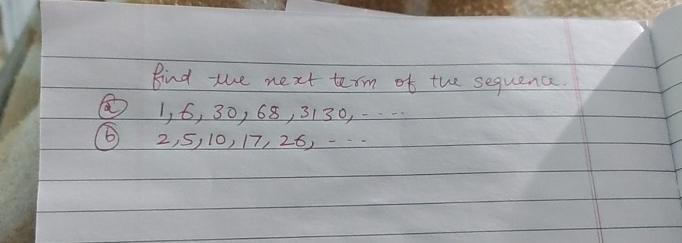 find the next term of the sequence.
(a) 1, 6, 30, 68, 3130, ----
(b) 2, 5, 10, 17, 26, ---